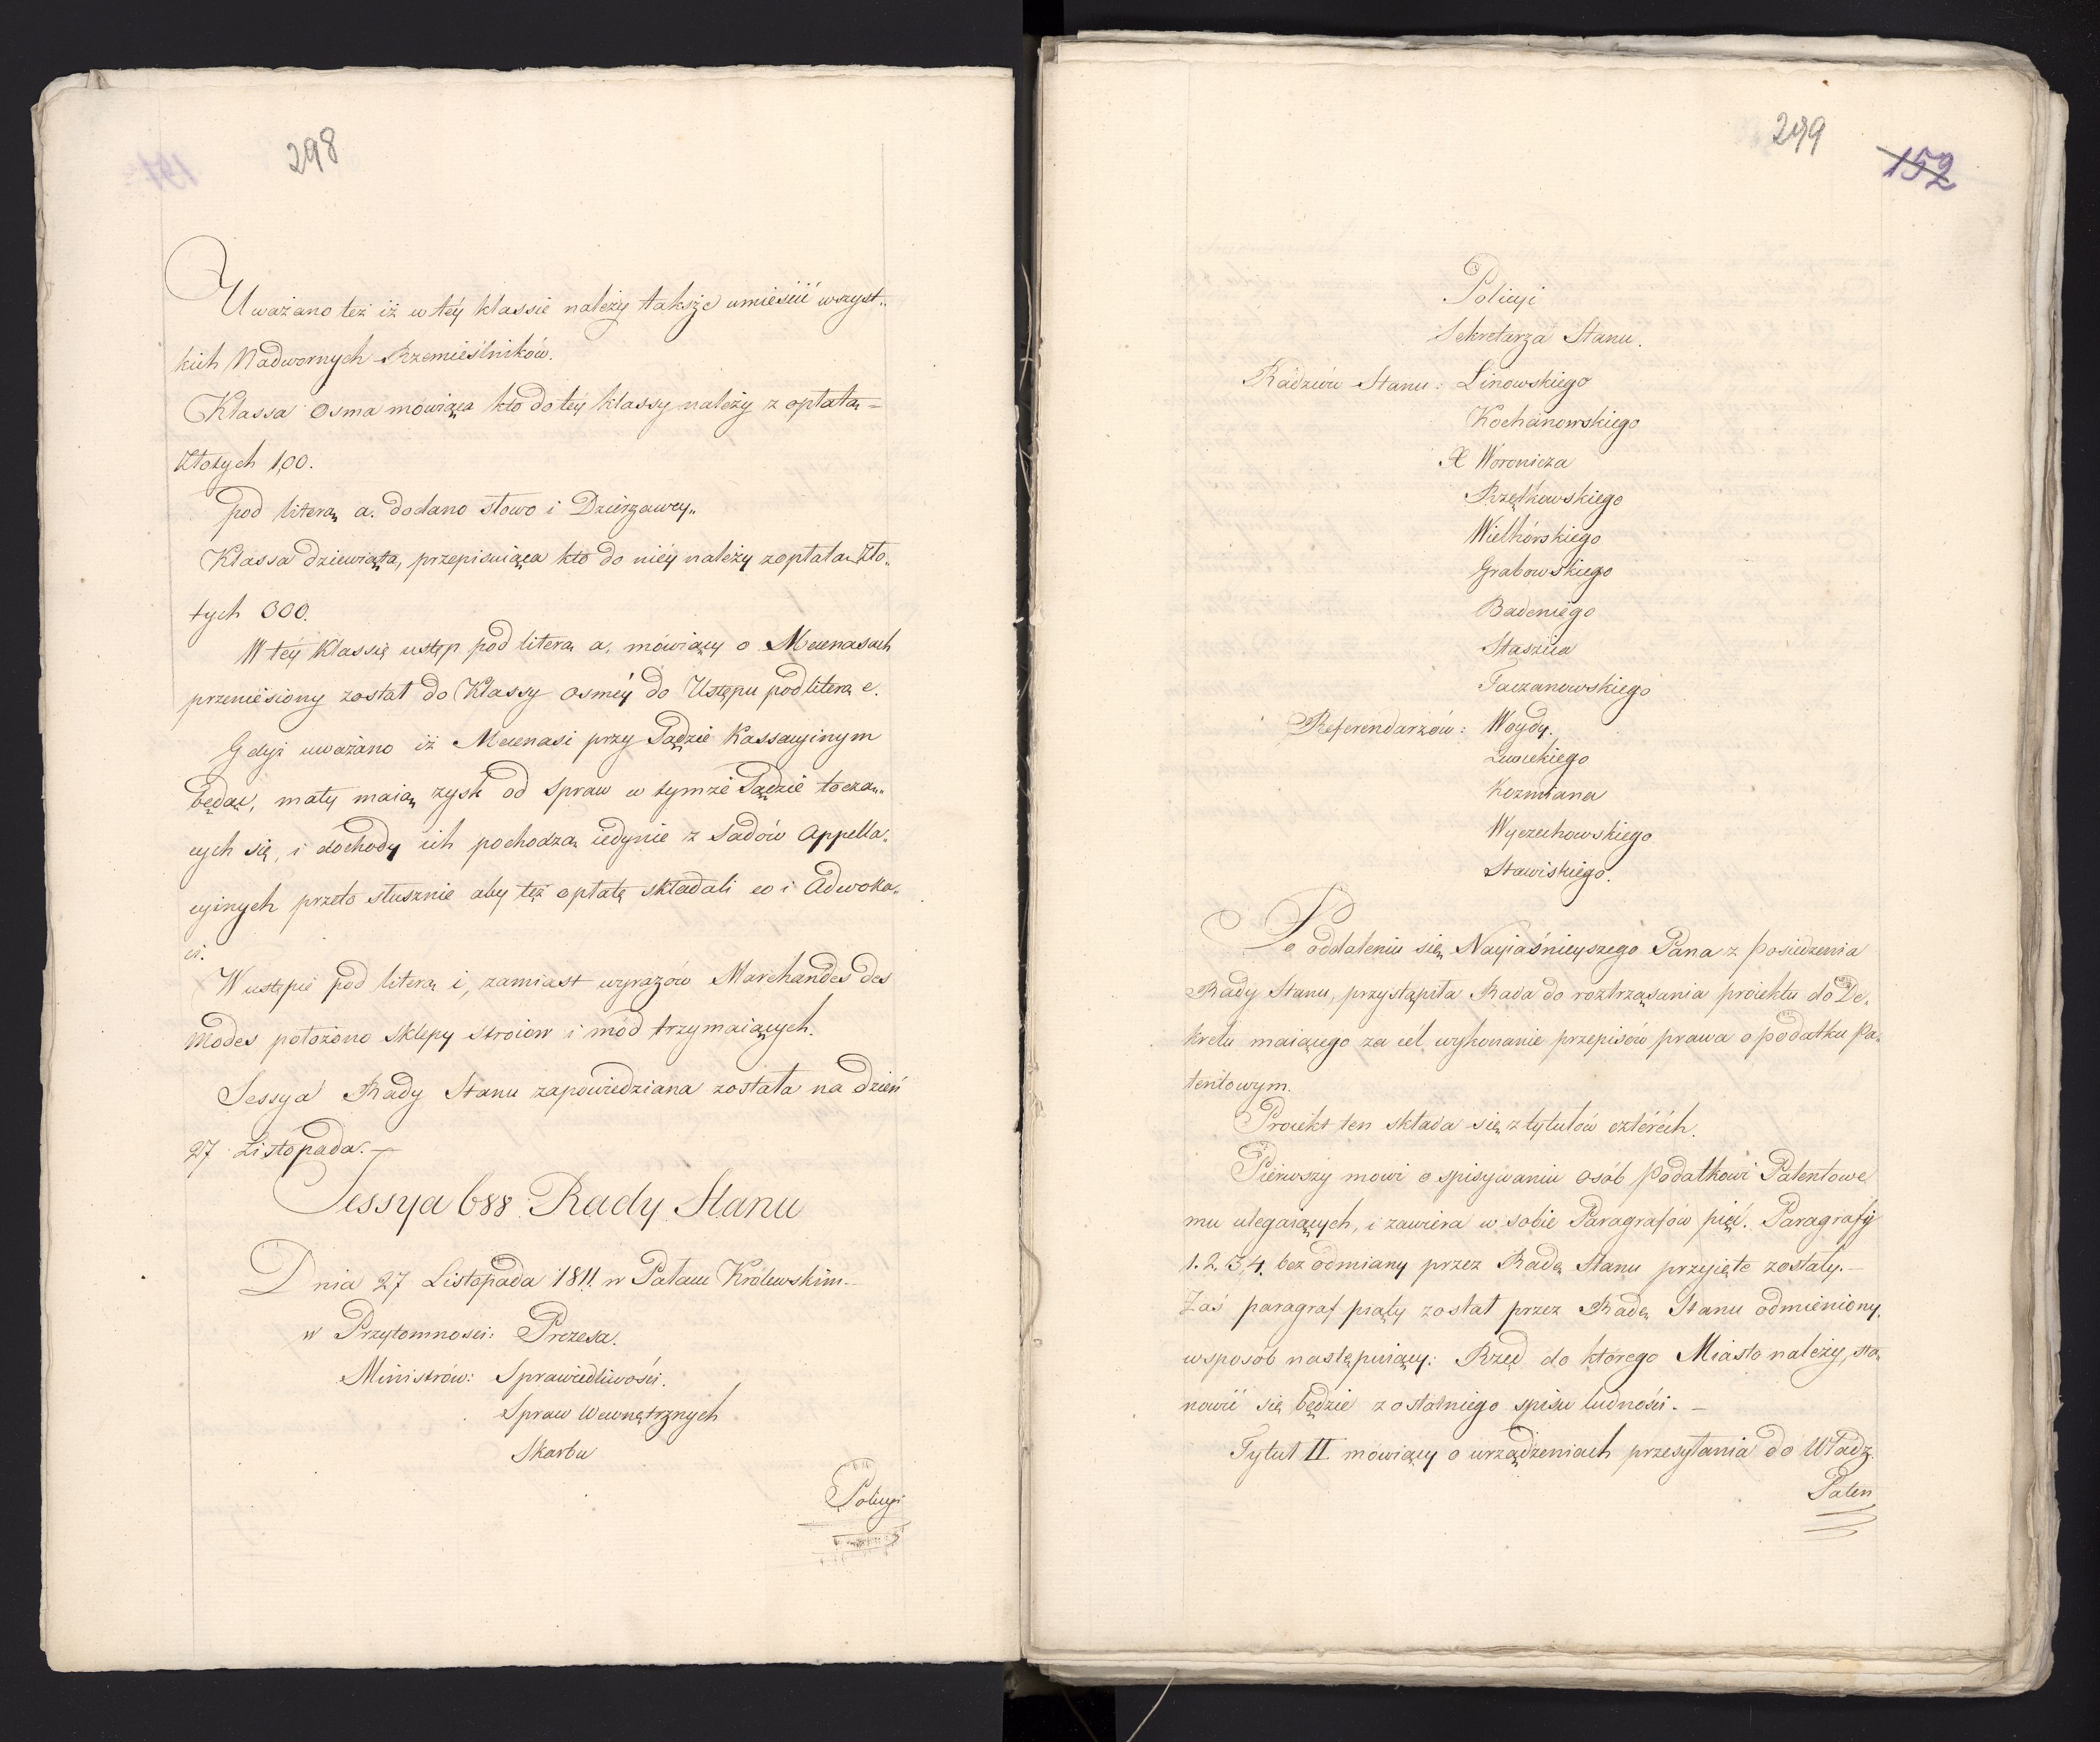 298
Uważano też iż w téy klassie należy także umieścić wszyst„
kich Nadwornych Rzemieślników.
Klassa Osma mówiąca kto do téy klassy należy z opłatą
Złotych 100.
Pod literą a. dodano słowo i Dzierżawcy„
Klassa dziewiąta, przepisuiąca kto do niéy należy z opłatą Zło„
tych 300.
W téy Klassie ustęp pod literą a. mówiący o Mecenasach
przeniesiony został do Klassy osméy do Ustępu pod literą e.
Gdyż uważano iż Mecenasi przy Sądzie Kassacyinym
będąc, mały maią zysk od Spraw w tymże Sądzie toczą„
cych się, i dochody ich pochodzą iedynie z Sadów Appella„
cyinych przeto słusznie aby też opłatę składali co i Adwoka„
ci.
W ustępie pod literą i, zamiast wyrazów Marchandes des
Modes położono Sklepy Stroiow i mód trzymaiących.
Sessya Rady Stanu zapowiedziana została na dzień
27 Listopada. —
Sessya 688 Rady Stanu
Dnia 27 Listopada 1811 w Pałacu Królewskim.
w Przytomności: Prezesa.
Ministrów: Sprawiedliwości.
Spraw Wewnętrznych
Skarbu
Policyi
299
152
Policyi
Sekretarza Stanu.
Radzców Stanu: Linowskiego
Kochanowskiego
X Woronicza
Rzętkowskiego
Wielhórskiego
Grabowskiego
Badeniego
Staszica
Taczanowskiego
Referendarzów: Woydy,
Lubickiego
Kozmiana
Wyczechowskiego
Stawiskiego.
Po oddaleniu się Nayiaśnieyszego Pana z posiedzenia
Rady Stanu, przystąpiła Rada do roztrząsania proiektu do De„
kretu maiącego za cél wykonanie przepisów prawa o podatku Pa„
tentowym.
Proiekt ten składa się z tytułów cztérech.
Pierwszy mowi o spisywaniu osób Podatkowi Patentowe
mu ulegaiących, i zawiera w sobie Paragrafów pięć. Paragrafy
1. 2. 3. 4. bez odmiany przez Radę Stanu przyięte zostały. —
Zaś paragraf piąty został przez Radę Stanu odmieniony.
w sposób następuiący: Rzęd do którego Miasto należy, sta„
nowić się będzie z ostatniego spisu ludności. —
Tytuł II mówiący o urządzeniach przesyłania do Władz
Paten